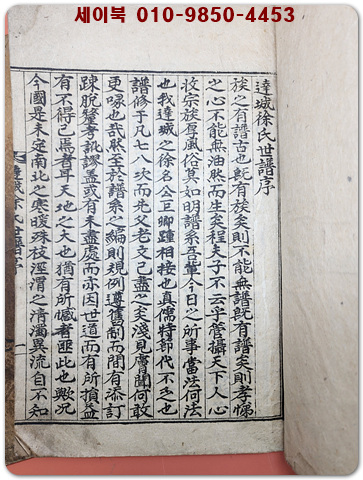 세이북 010-9850-4453
達城徐氏世譜序
族之有譜古也旣有族矣則不能無譜旣有譜矣則孝悌
之心不能無油然而生矣程夫子不云乎管攝天下人心
收宗族厚風俗莫如明譜系吾輩今日之所事當法何法
也我達城之徐名公巨卿踵相接也眞儒特節代不乏也
譜修于凡七八次而先父老文已盡之矣淺見膚聞何敢
更喙也哉然至於譜系之編則規例遵舊制而間有添訂
疎脫鰲孝訛謬盖或有未盡處而亦因世道而有所損益
有不得已焉者耳天地之大也猶有所憾者匪此也歟況
今國是未定南北之寒暖殊枝涇渭之淸濁異流自不知
達城徐氏世譜序